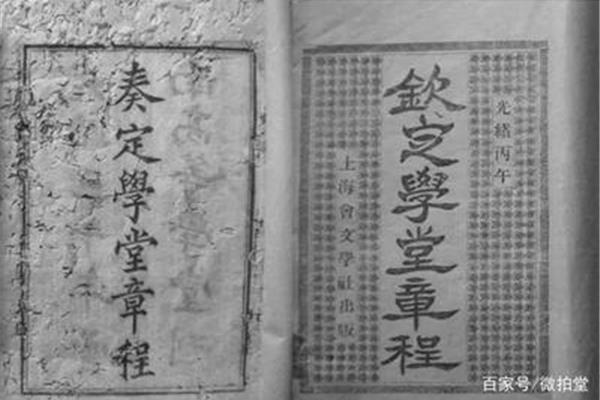 奏定學堂章程
光緒丙午
欽定學堂章程
上海會文學社出版
百家号/微拍堂